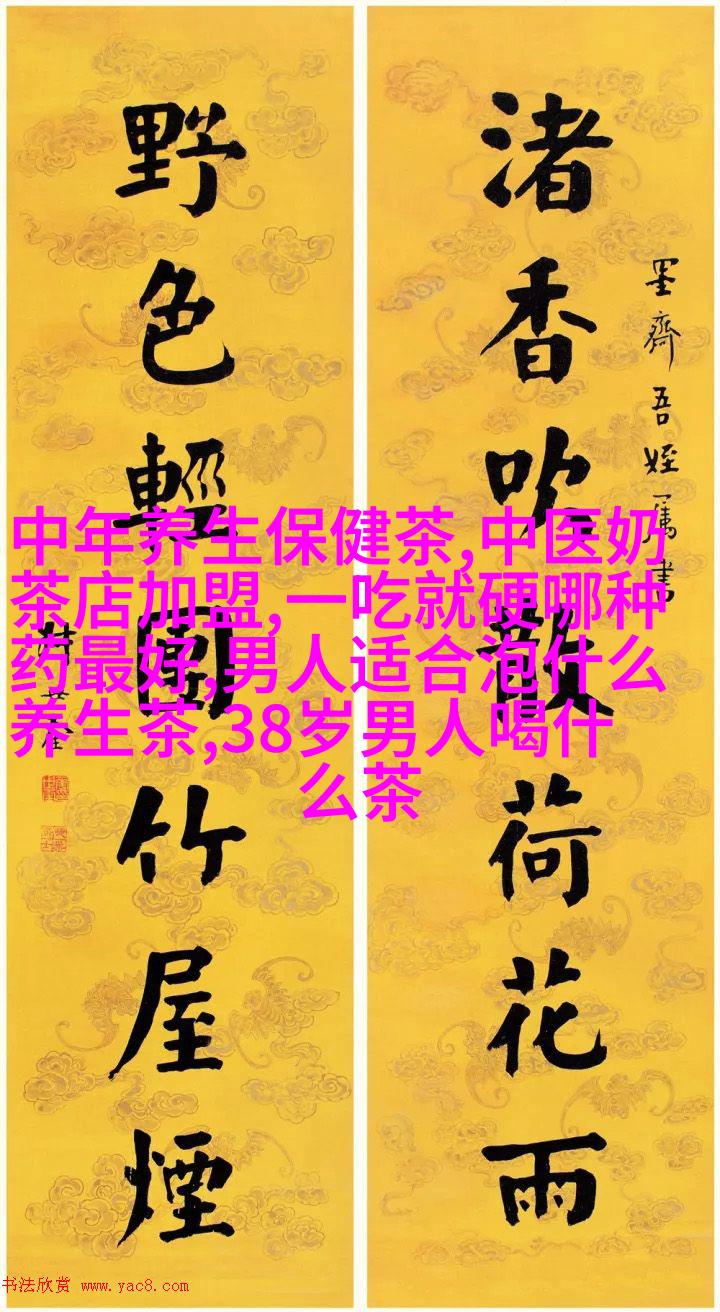 渚香吹散荷花雨
墨齋吾姪屬書
野色輕團竹屋煙
中年养生保健茶,中医奶
茶店加盟,一吃就硬哪种
药最好,男人适合泡什么
养生茶,38岁男人喝什
么茶
书法欣赏 www.yac8.com